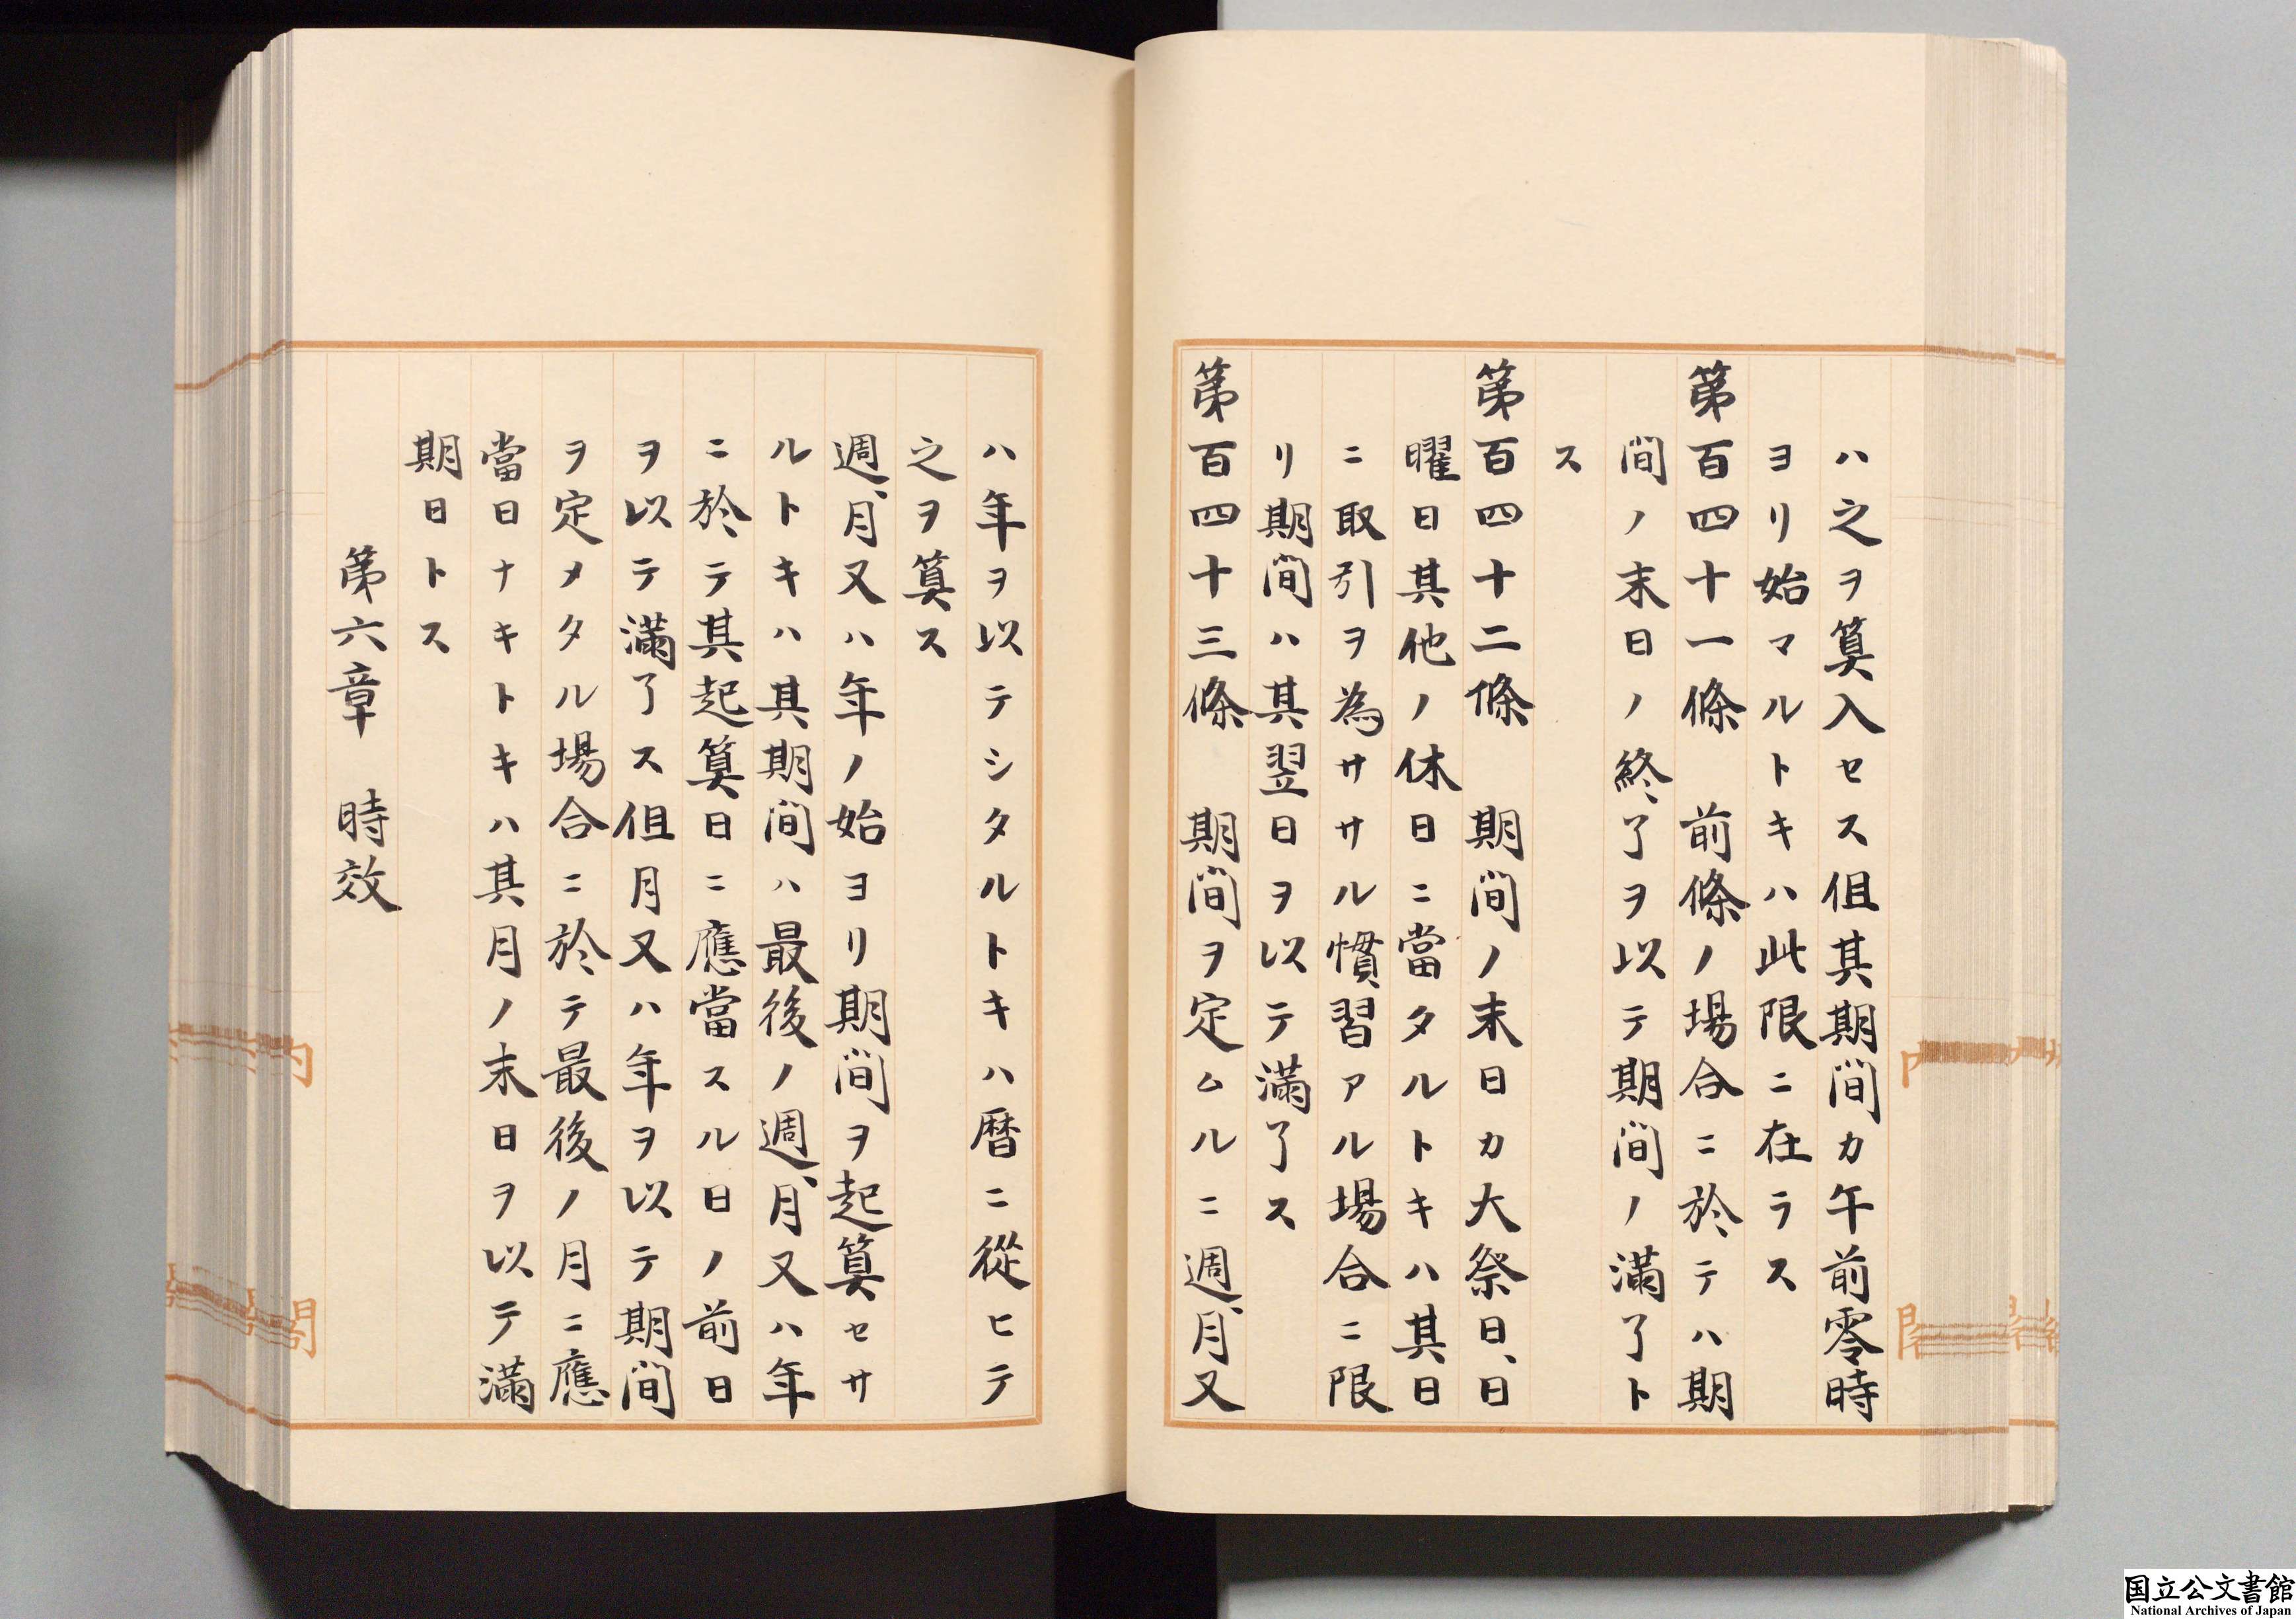 ハ之ヲ算入セス但其期間カ午前零時
ヨリ始マルトキハ此限ニ在ラス
第百四十一條　前條ノ場合ニ於テハ期
間ノ末日ノ終了ヲ以テ期間ノ滿了ト
ス
第百四十二條　期間ノ末日カ大祭日、日
曜日其他ノ休日ニ當タルトキハ其日
ニ取引ヲ為サヽル慣習アル場合ニ限
リ期間ハ其翌日ヲ以テ滿了ス
第百四十三條　期間ヲ定ムルニ週、月又
ハ年ヲ以テシタルトキハ暦ニ從ヒテ
之ヲ算ス
週、月又ハ年ノ始ヨリ期間ヲ起算セサ
ルトキハ其期間ハ最後ノ週、月又ハ年
ニ於テ其起算日ニ應當スル日ノ前日
ヲ以テ滿了ス但月又ハ年ヲ以テ期間
ヲ定メタル場合ニ於テ最後ノ月ニ應
當日ナキトキハ其月ノ末日ヲ以テ滿
期日トス
第六章　時效
内
閣
国立公文書館
National Archives of Japan